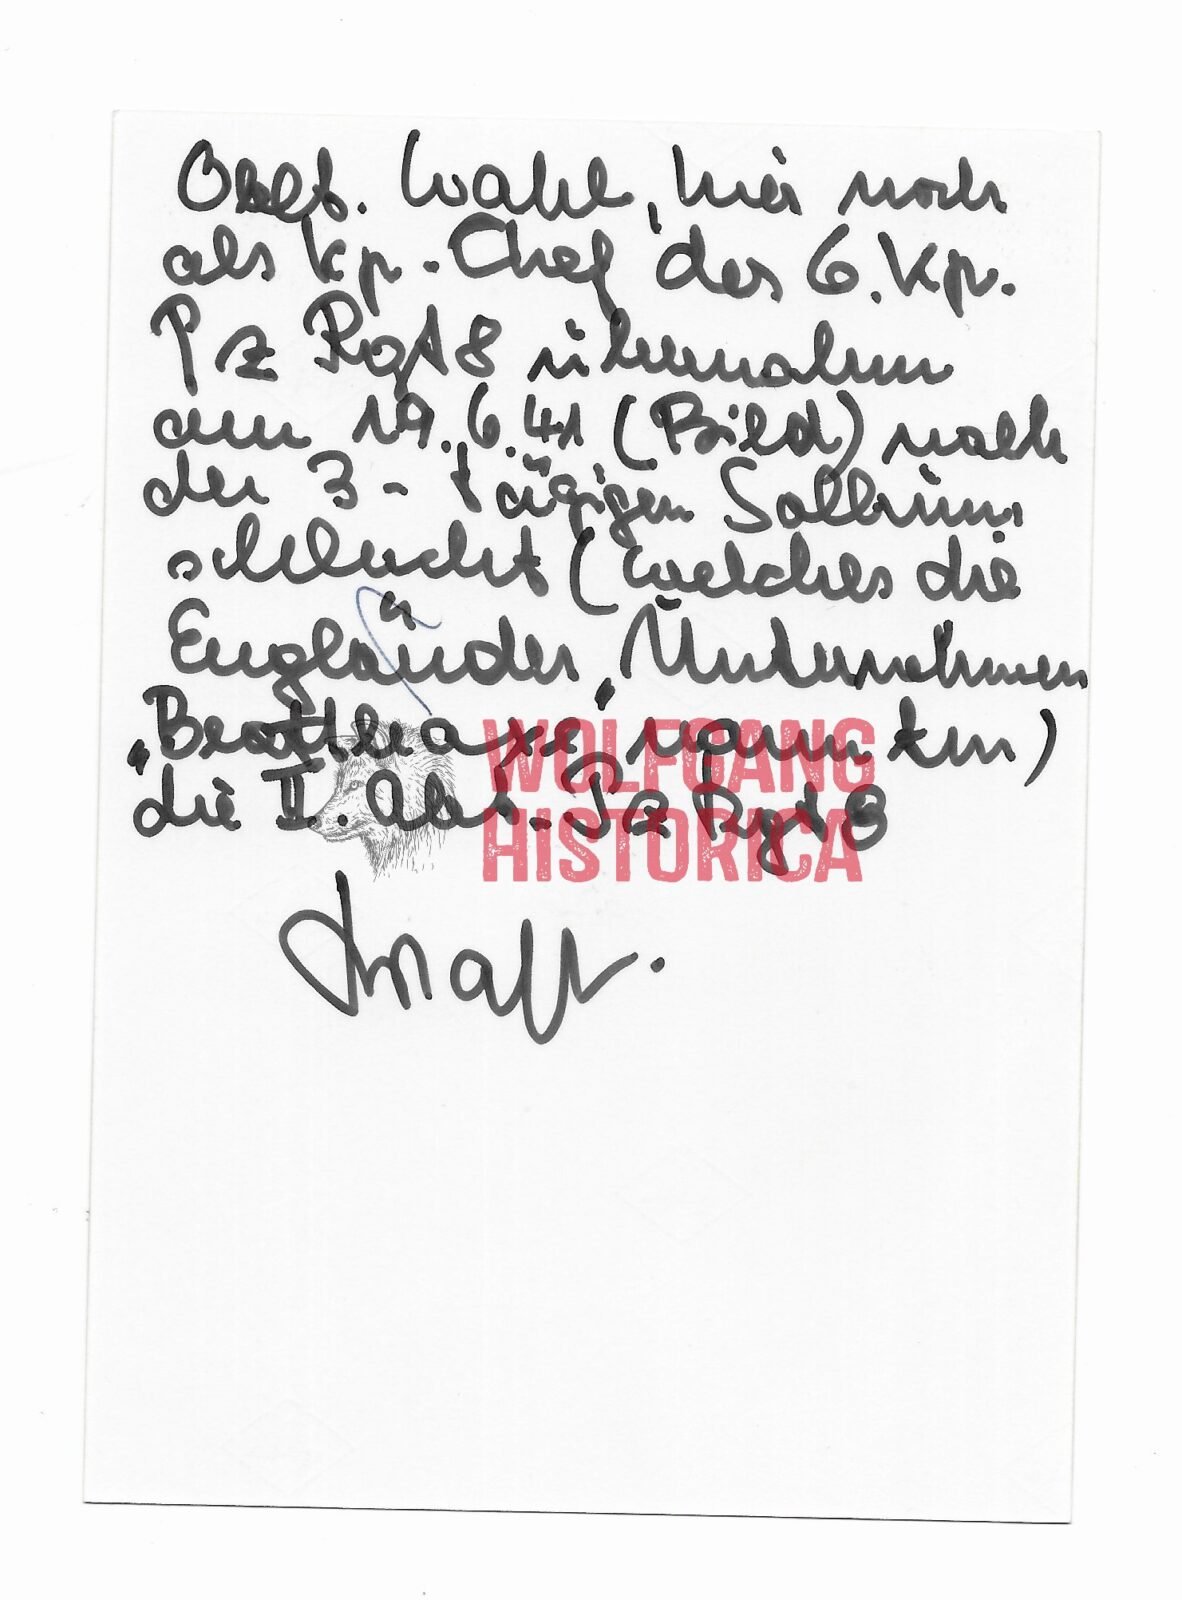 Oblt. Wahl, hier noch
als Kp.-Chef der 6. Kp.
Pz Rgt 8 übernahm
am 19.6.41 (Bild) nach
der 3-tägigen Sollum
schlacht (welches die
Engländer „Unternehmen
„Beattleaxe" nannten)
die II. Abt. Pz Rgt 8
WOLFGANG
HISTORICA